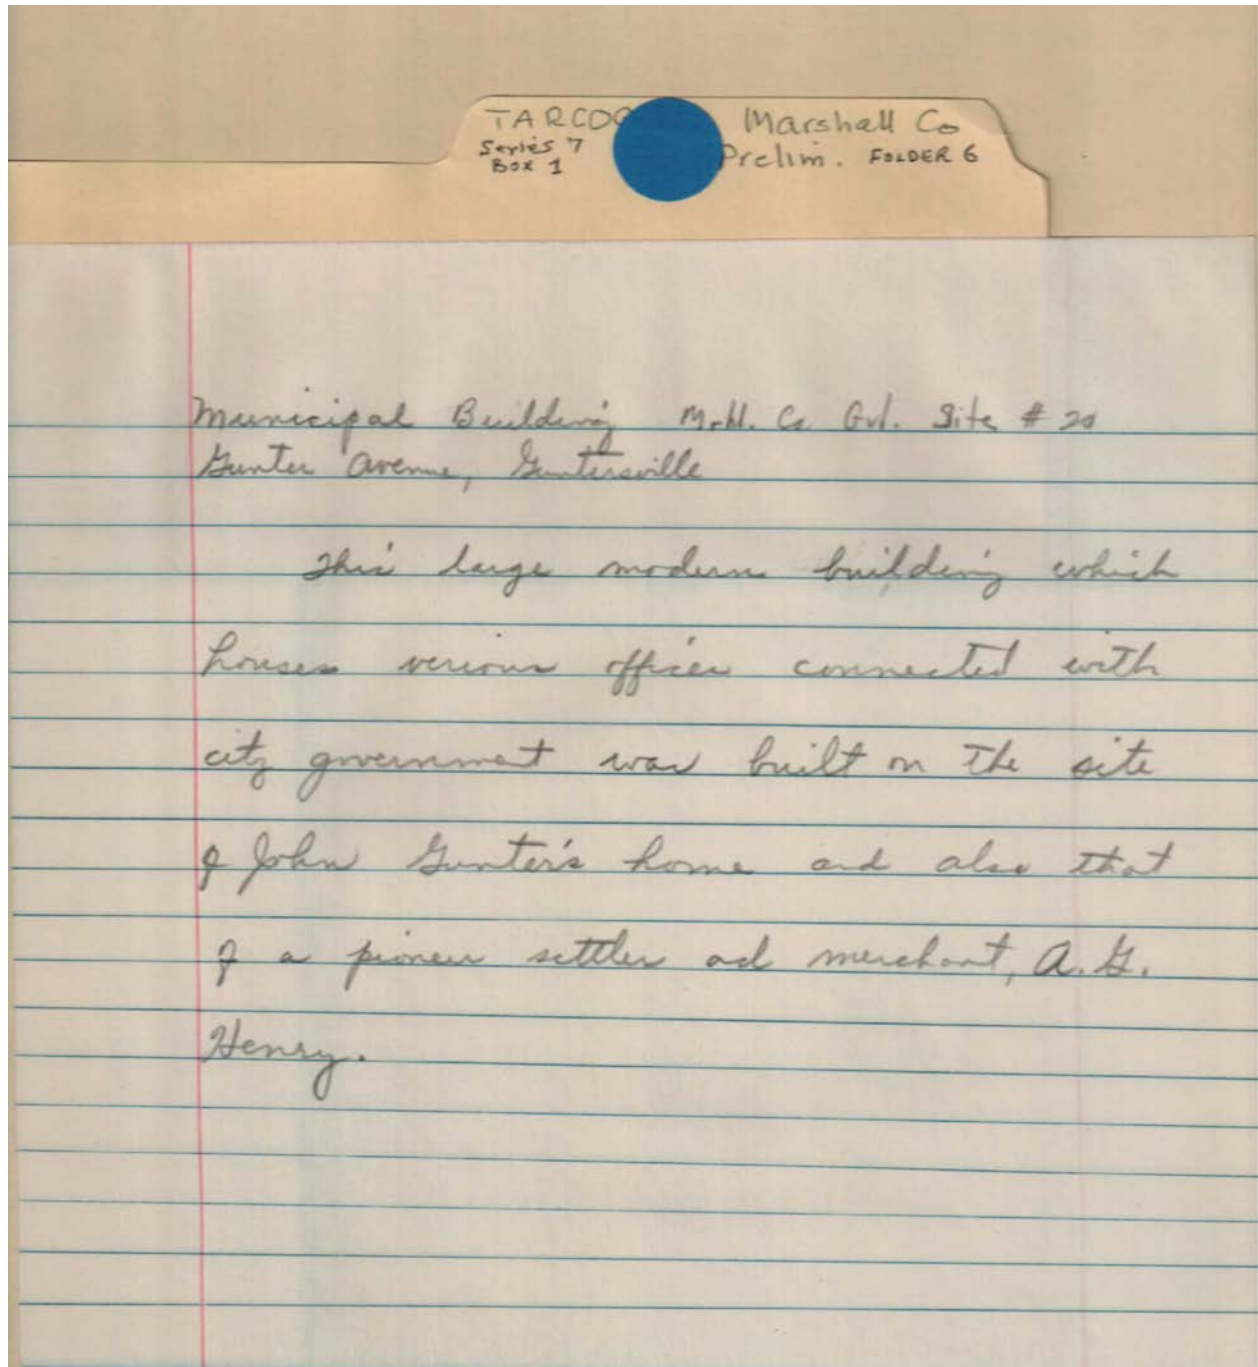 TARCOG Marshall Co
Series 7 Prelim. FOLDER 6
Box 1
Municipal Building Mrhl. Co. Gvl. Site # 20
Gunter Avenue, Guntersville
This large modern building which
houses verious offices connected with
city government was built on the site
of John Gunter's home and also that
of a pioneer settler ad merchant, A.G.
Henry.